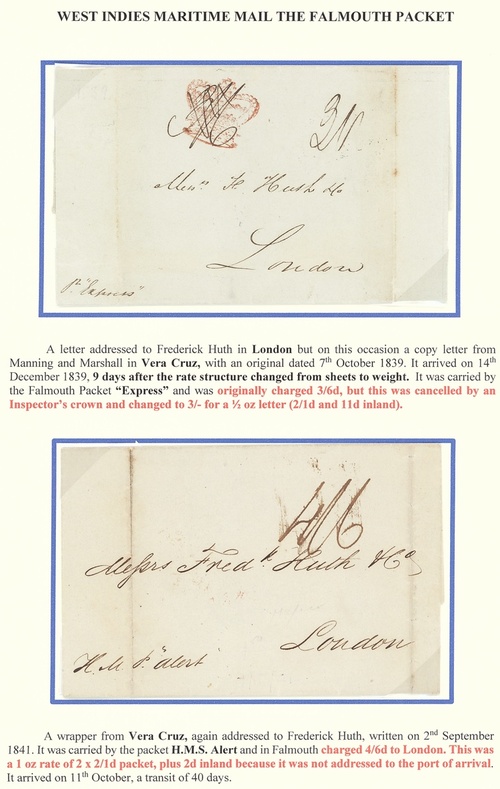 WEST INDIES MARITIME MAIL THE FALMOUTH PACKET
3/
Messrs F Huth & Co
London
Pr "Express"
A letter addressed to Frederick Huth in London but on this occasion a copy letter from
Manning and Marshall in Vera Cruz, with an original dated 7th October 1839. It arrived on 14th
December 1839, 9 days after the rate structure changed from sheets to weight. It was carried by
the Falmouth Packet “Express” and was originally charged 3/6d, but this was cancelled by an
Inspector's crown and changed to 3/- for a ½ oz letter (2/1d and 11d inland).
4/6
Messrs Fredk Huth & Co
London
H.M.P. "Alert"
A wrapper from Vera Cruz, again addressed to Frederick Huth, written on 2nd September
1841. It was carried by the packet H.M.S. Alert and in Falmouth charged 4/6d to London. This was
a 1 oz rate of 2 x 2/1d packet, plus 2d inland because it was not addressed to the port of arrival.
It arrived on 11th October, a transit of 40 days.